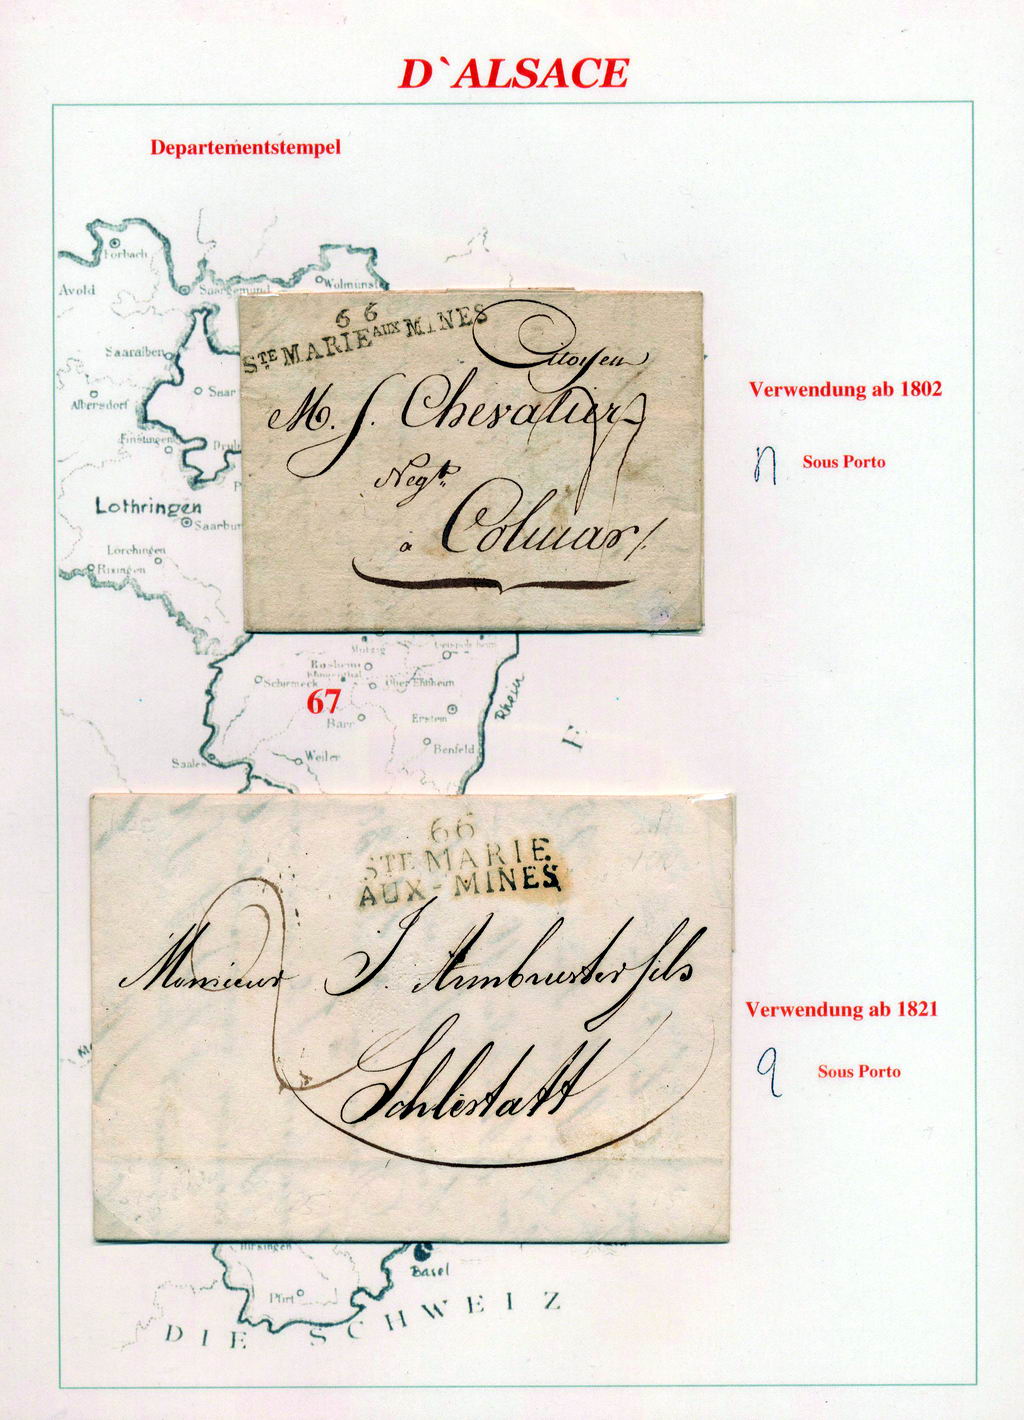 D`ALSACE
Departementstempel
Forbach
Avold
Saargemund
Wolmunst
Saaralben
Saar
Albersdorf
Finstingen
Lothringen
Saarbur
Lörchingen
Rixingen
66
STE MARIE AUX MINES
Citoyen
M. J. Chevalier
Negt.
a Colmar
Verwendung ab 1802
Sous Porto
Mutzig
Rosheim
Schirmeck
Ober Ehnheim
67
Barr
Erstein
Rhein
Benfeld
Weiler
Saales
E
66
STE MARIE
AUX-MINES
Monsieur J. Armbruster fils
Schlestatt
Verwendung ab 1821
Sous Porto
Hirsingen
Basel
Pfirt
DIE SCHWEIZ